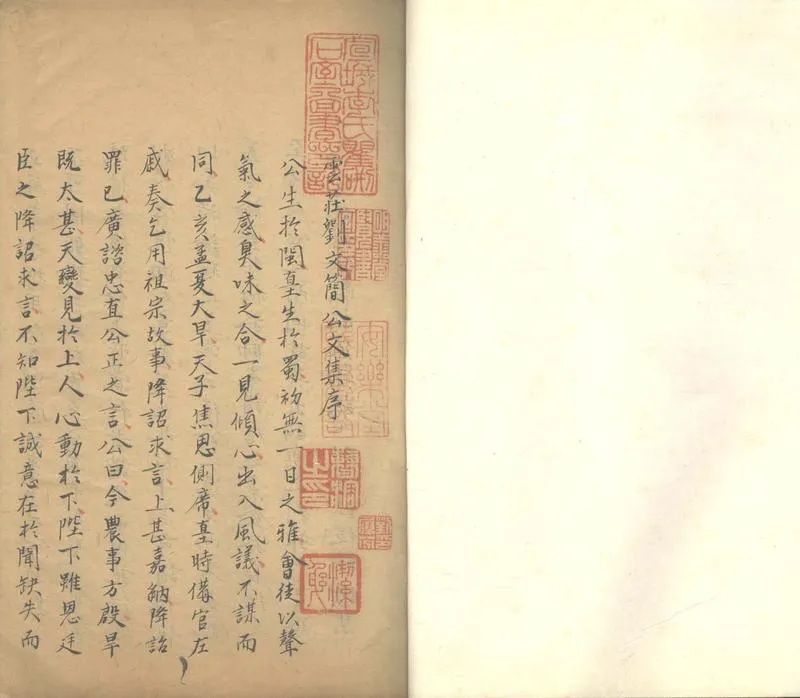 雲莊劉文簡公文集序
公生於閩臺生於蜀初無一日之雅會徒以聲
氣之感臭味之合一見傾心出入風議不謀而
同乙亥孟夏大旱天子焦思側席臺時備官左
戚奏乞用祖宗故事降詔求言上甚嘉納降詔
罪已廣諮忠直公正之言公曰今農事方殷旱
既太甚天變見於上人心動於下陛下雖恩廷
臣之降詔求言不知陛下誠意在於聞缺失而